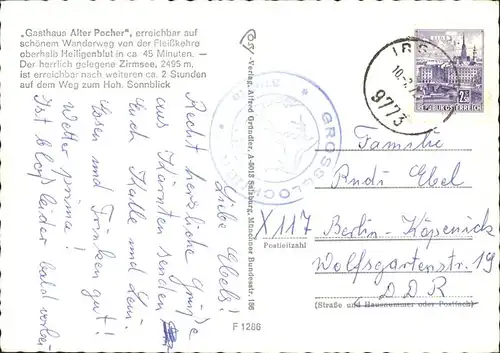 „Gasthaus Alter Pocher", erreichbar auf
schönem Wanderweg von der Fleißkehre
oberhalb Heiligenblut in ca. 45 Minuten. —
Der herrlich gelegene Zirmsee, 2495 m,
ist erreichbar nach weiteren ca. 2 Stunden
auf dem Weg zum Hoh. Sonnblick
Liebe Ebels!
Recht herzliche Grüße
aus Kärnten senden
Euch Kalle und
Essen und Trinken gut!
Wetter prima!
Ist bloß leider bald vorbei
Verlag Alfred Gründler, A-5013 Salzburg, Münchner Bundesstr. 186
F 1286
GROSSGLOCKNER
9773
REPUBLIK ÖSTERREICH
Familie
Rudi Ebel
X 117
Berlin-Köpenick
Postleitzahl
Wolfsgartenstr. 19
DDR
(Straße und Hausnummer oder Postfach)